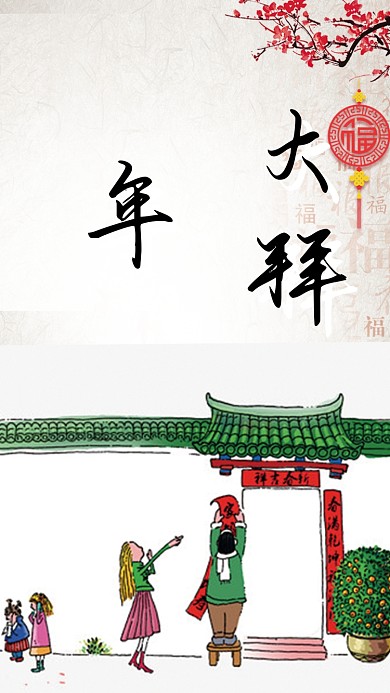 大拜
年
福
福
福
福
新春吉祥
春满乾坤福